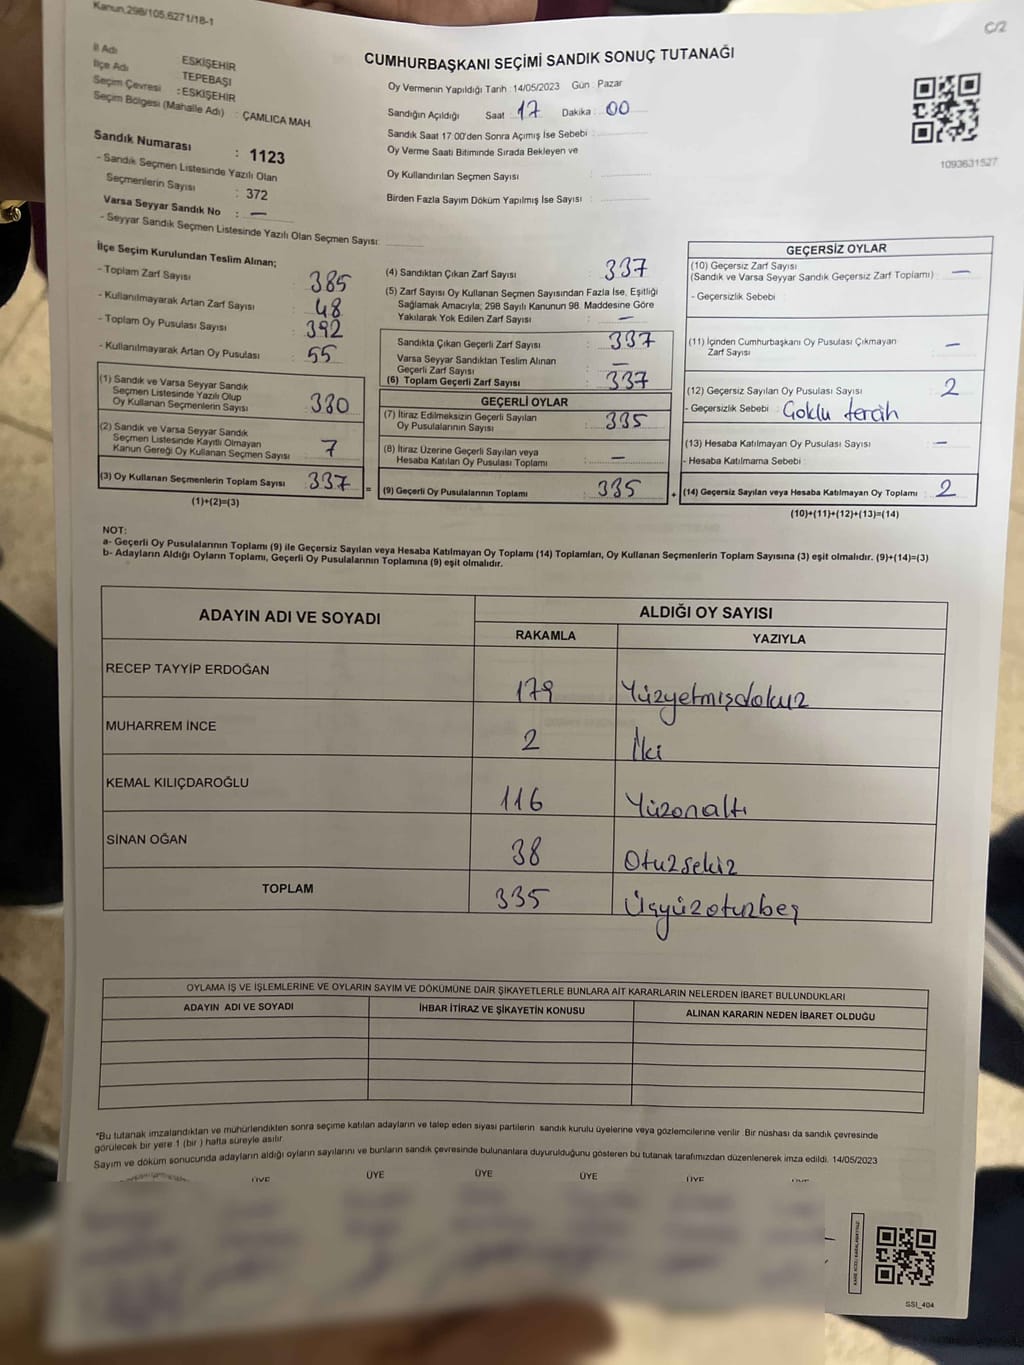 Kanun,298/105,6271/18-1
C/2
CUMHURBAŞKANI SEÇİMİ SANDIK SONUÇ TUTANAĞI
İl Adı : ESKİŞEHİR
İlçe Adı : TEPEBAŞI
Seçim Çevresi : ESKİŞEHİR
Seçim Bölgesi (Mahalle Adı) : ÇAMLICA MAH.
Sandık Numarası : 1123
- Sandık Seçmen Listesinde Yazılı Olan
Seçmenlerin Sayısı : 372
Varsa Seyyar Sandık No : —
- Seyyar Sandık Seçmen Listesinde Yazılı Olan Seçmen Sayısı:
Oy Vermenin Yapıldığı Tarih : 14/05/2023 Gün : Pazar
Sandığın Açıldığı Saat : 17 Dakika : 00
Sandık Saat 17:00'den Sonra Açımış İse Sebebi :
Oy Verme Saati Bitiminde Sırada Bekleyen ve
Oy Kullandırılan Seçmen Sayısı :
Birden Fazla Sayım Döküm Yapılmış İse Sayısı :
1093631527
İlçe Seçim Kurulundan Teslim Alınan;
- Toplam Zarf Sayısı : 385
- Kullanılmayarak Artan Zarf Sayısı : 48
- Toplam Oy Pusulası Sayısı : 392
- Kullanılmayarak Artan Oy Pusulası : 55
(1) Sandık ve Varsa Seyyar Sandık
Seçmen Listesinde Yazılı Olup
Oy Kullanan Seçmenlerin Sayısı : 330
(2) Sandık ve Varsa Seyyar Sandık
Seçmen Listesinde Kayıtlı Olmayan
Kanun Gereği Oy Kullanan Seçmen Sayısı : 7
(3) Oy Kullanan Seçmenlerin Toplam Sayısı : 337
(1)+(2)=(3)
=
(4) Sandıktan Çıkan Zarf Sayısı : 337
(5) Zarf Sayısı Oy Kullanan Seçmen Sayısından Fazla İse, Eşitliği
Sağlamak Amacıyla; 298 Sayılı Kanunun 98. Maddesine Göre
Yakılarak Yok Edilen Zarf Sayısı : —
Sandıkta Çıkan Geçerli Zarf Sayısı : 337
Varsa Seyyar Sandıktan Teslim Alınan
Geçerli Zarf Sayısı : —
(6) Toplam Geçerli Zarf Sayısı : 337
GEÇERLİ OYLAR
(7) İtiraz Edilmeksizin Geçerli Sayılan
Oy Pusulalarının Sayısı : 335
(8) İtiraz Üzerine Geçerli Sayılan veya
Hesaba Katılan Oy Pusulası Toplamı : —
(9) Geçerli Oy Pusulalarının Toplamı : 335
+
GEÇERSİZ OYLAR
(10) Geçersiz Zarf Sayısı
(Sandık ve Varsa Seyyar Sandık Geçersiz Zarf Toplamı) : —
- Geçersizlik Sebebi :
(11) İçinden Cumhurbaşkanı Oy Pusulası Çıkmayan
Zarf Sayısı : —
(12) Geçersiz Sayılan Oy Pusulası Sayısı : 2
- Geçersizlik Sebebi : Çoklu tercih
(13) Hesaba Katılmayan Oy Pusulası Sayısı : —
- Hesaba Katılmama Sebebi :
(14) Geçersiz Sayılan veya Hesaba Katılmayan Oy Toplamı : 2
(10)+(11)+(12)+(13)=(14)
NOT:
a- Geçerli Oy Pusulalarının Toplamı (9) ile Geçersiz Sayılan veya Hesaba Katılmayan Oy Toplamı (14) Toplamları, Oy Kullanan Seçmenlerin Toplam Sayısına (3) eşit olmalıdır. (9)+(14)=(3)
b- Adayların Aldığı Oyların Toplamı, Geçerli Oy Pusulalarının Toplamına (9) eşit olmalıdır.
ADAYIN ADI VE SOYADI
ALDIĞI OY SAYISI
RAKAMLA YAZIYLA
RECEP TAYYİP ERDOĞAN 179 Yüzyetmişdokuz
MUHARREM İNCE 2 İki
KEMAL KILIÇDAROĞLU 116 Yüzonaltı
SİNAN OĞAN 38 Otuzsekiz
TOPLAM 335 Üçyüzotuzbeş
OYLAMA İŞ VE İŞLEMLERİNE VE OYLARIN SAYIM VE DÖKÜMÜNE DAİR ŞİKAYETLERLE BUNLARA AİT KARARLARIN NELERDEN İBARET BULUNDUKLARI
ADAYIN ADI VE SOYADI İHBAR İTİRAZ VE ŞİKAYETİN KONUSU ALINAN KARARIN NEDEN İBARET OLDUĞU
*Bu tutanak imzalandıktan ve mühürlendikten sonra seçime katılan adayların ve talep eden siyasi partilerin sandık kurulu üyelerine veya gözlemcilerine verilir. Bir nüshası da sandık çevresinde
görülecek bir yere 1 (bir ) hafta süreyle asılır.
Sayım ve döküm sonucunda adayların aldığı oyların sayılarını ve bunların sandık çevresinde bulunanlara duyurulduğunu gösteren bu tutanak tarafımızdan düzenlenerek imza edildi. 14/05/2023
ÜYE ÜYE ÜYE ÜYE ÜYE
SSI_404